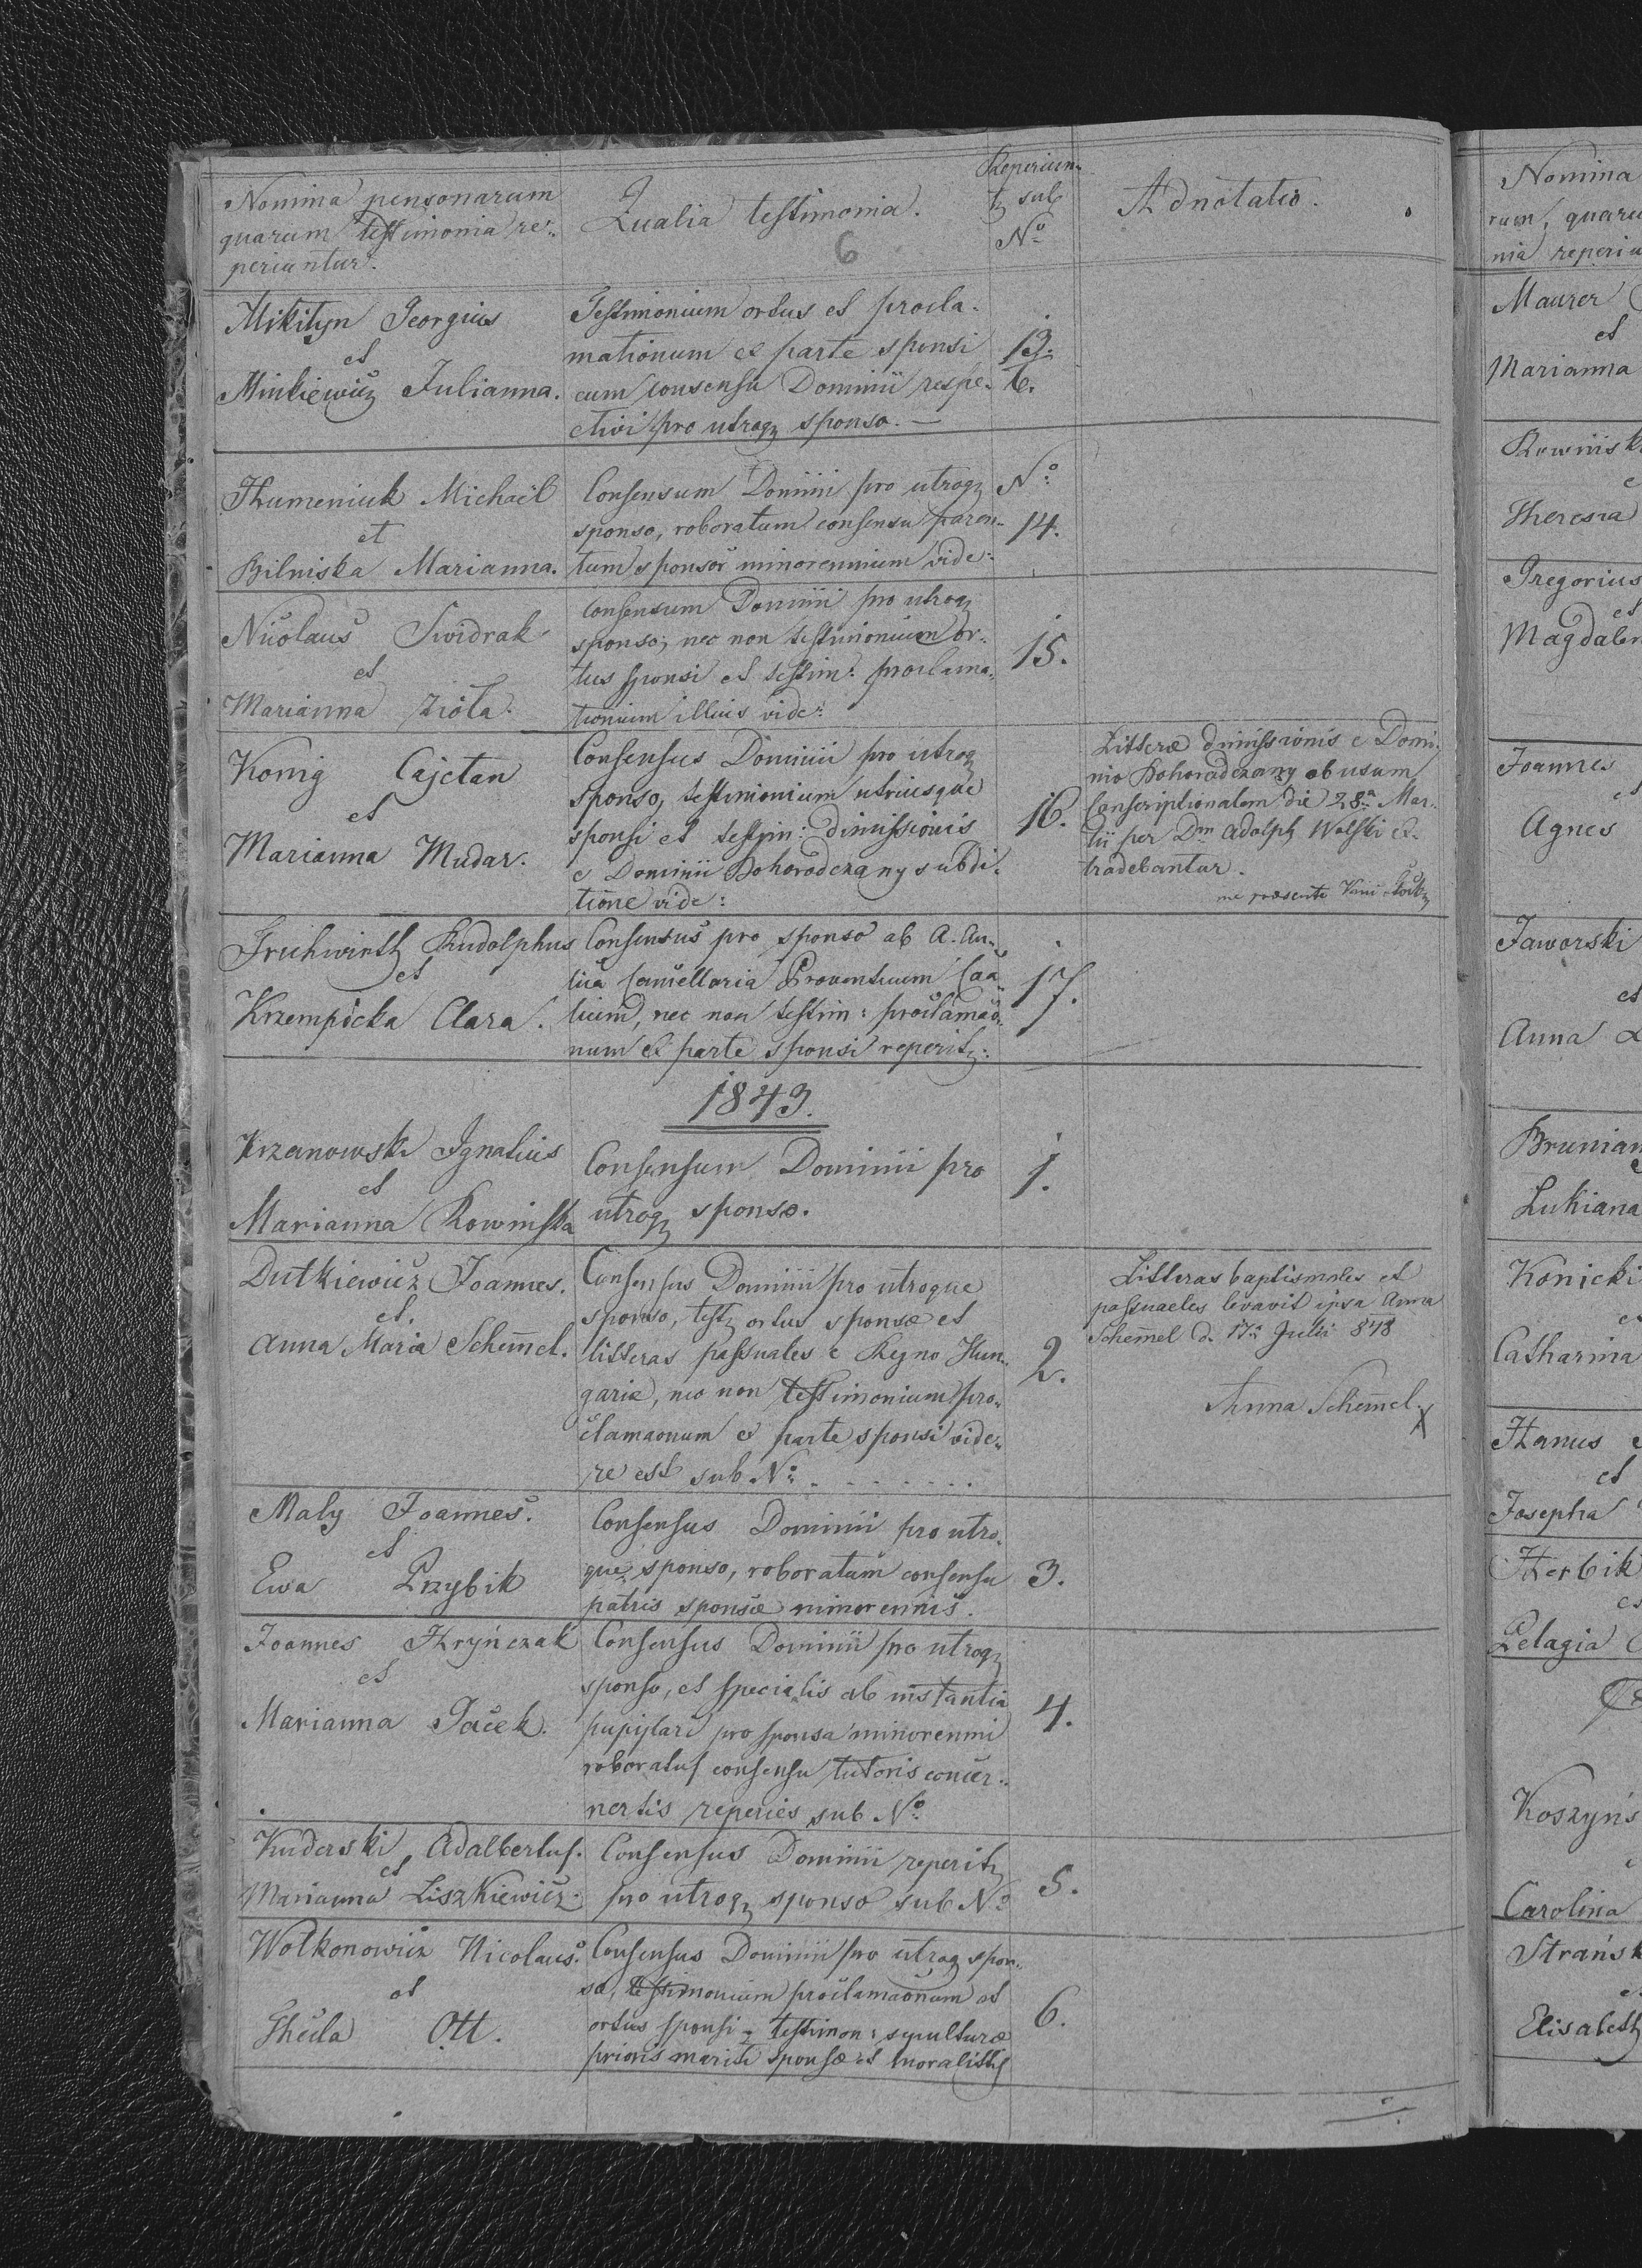 Nomina personarum
quarum testimonia re-
periuntur.
Qualia testimonia.
6
Reperiun-
tz sub
No
Adnotatio.
Mikityn Georgius
et
Minkiewicz Julianna.
Testimonium ortus et procla-
mationum ex parte sponsi
cum consensu Dominii respe-
ctivi pro utroqz sponso. —
13.
t.
Humeniuk Michaël
et
Bilniska Marianna.
Consensum Dominii pro utroqz
sponso, roboratum consensu paren-
tum sponsor minorennium vide:
No
14.
Nicolaus Swidrak
et
Marianna Zioła.
Consensum Dominii pro utroqz
sponso, nec non testimonium or-
tus sponsi et testim: proclama-
tionum illius vide:
15.
Konig Cajetan
et
Marianna Mudar.
Consensus Dominii pro utroqz
sponso, testimonium utriusque
sponsi et testim: dimissionis
e Dominii Bohorodczany subdi-
tione vide:
16.
Litteræ dimissionis e Domi-
nio Bohorodczany ob usum
Conscriptionalem die 28a Mar-
tii per Dm Adolph Wolski ex-
tradebantur.
me præsente
Fruhwirth Rudolphus
et
Krzempicka Clara.
Consensus pro sponso ab A. Au-
lica Cancellaria Proventuum Caa-
lium, nec non testim: proclamao-
num ex parte sponsi reperitz:
17.
1843.
Krzanowski Ignatius
et
Marianna Rowinska
Consensum Dominii pro
utroqz sponso.
1.
Dutkiewicz Joannes.
et.
Anna Maria Schemel.
Consensus Dominii pro utroque
sponso, testz ortus sponsæ et
litteras passuales e Regno Hun-
gariæ, nec non testimonium pro-
clamaonum ex parte sponsi vide-
re est sub No . . . . . . .
2.
Litteras baptismales et
passuaeles levavit ipsa Anna
Schemel d. 17a Julii 848
Anna Schemel
X
Maly Joannes.
et
Ewa Przybik
Consensus Dominii pro utro-
que sponso, roboratum consensu
patris sponsæ minorennis.
3.
Joannes Hryńczak
et
Marianna Pacek.
Consensus Dominii pro utroqz
sponso, et specialis ab instantia
pupillari pro sponsa minorenni
roboratus consensu tutoris concer-
nertis reperies sub No
4.
Kuderski Adalbertus.
et
Marianna Liszkiewicz.
Consensus Dominii reperitz
pro utroqz sponso sub No
5.
Wolkonowicz Nicolaus.
et
Thecla Ott.
Consensus Dominii pro utroqz spon-
so, testimonium proclamaonum et
ortus sponsi, testimon: sepulturæ
prioris mariti sponsæ et moralitis
6.
Nomina
rum, quaru
nia reperiu
Maurer
et
Marianna
Rowinisk
Theresia
Gregorius
et
Magdalen
Joannes
et
Agnes
Jaworski
et
Anna
Brunian
Lukiana
Konicki
Catharina
Hanus
et
Josepha
Herbik
et
Pelagia
Koszyńs
Carolina
Strańsk
Elisabeth